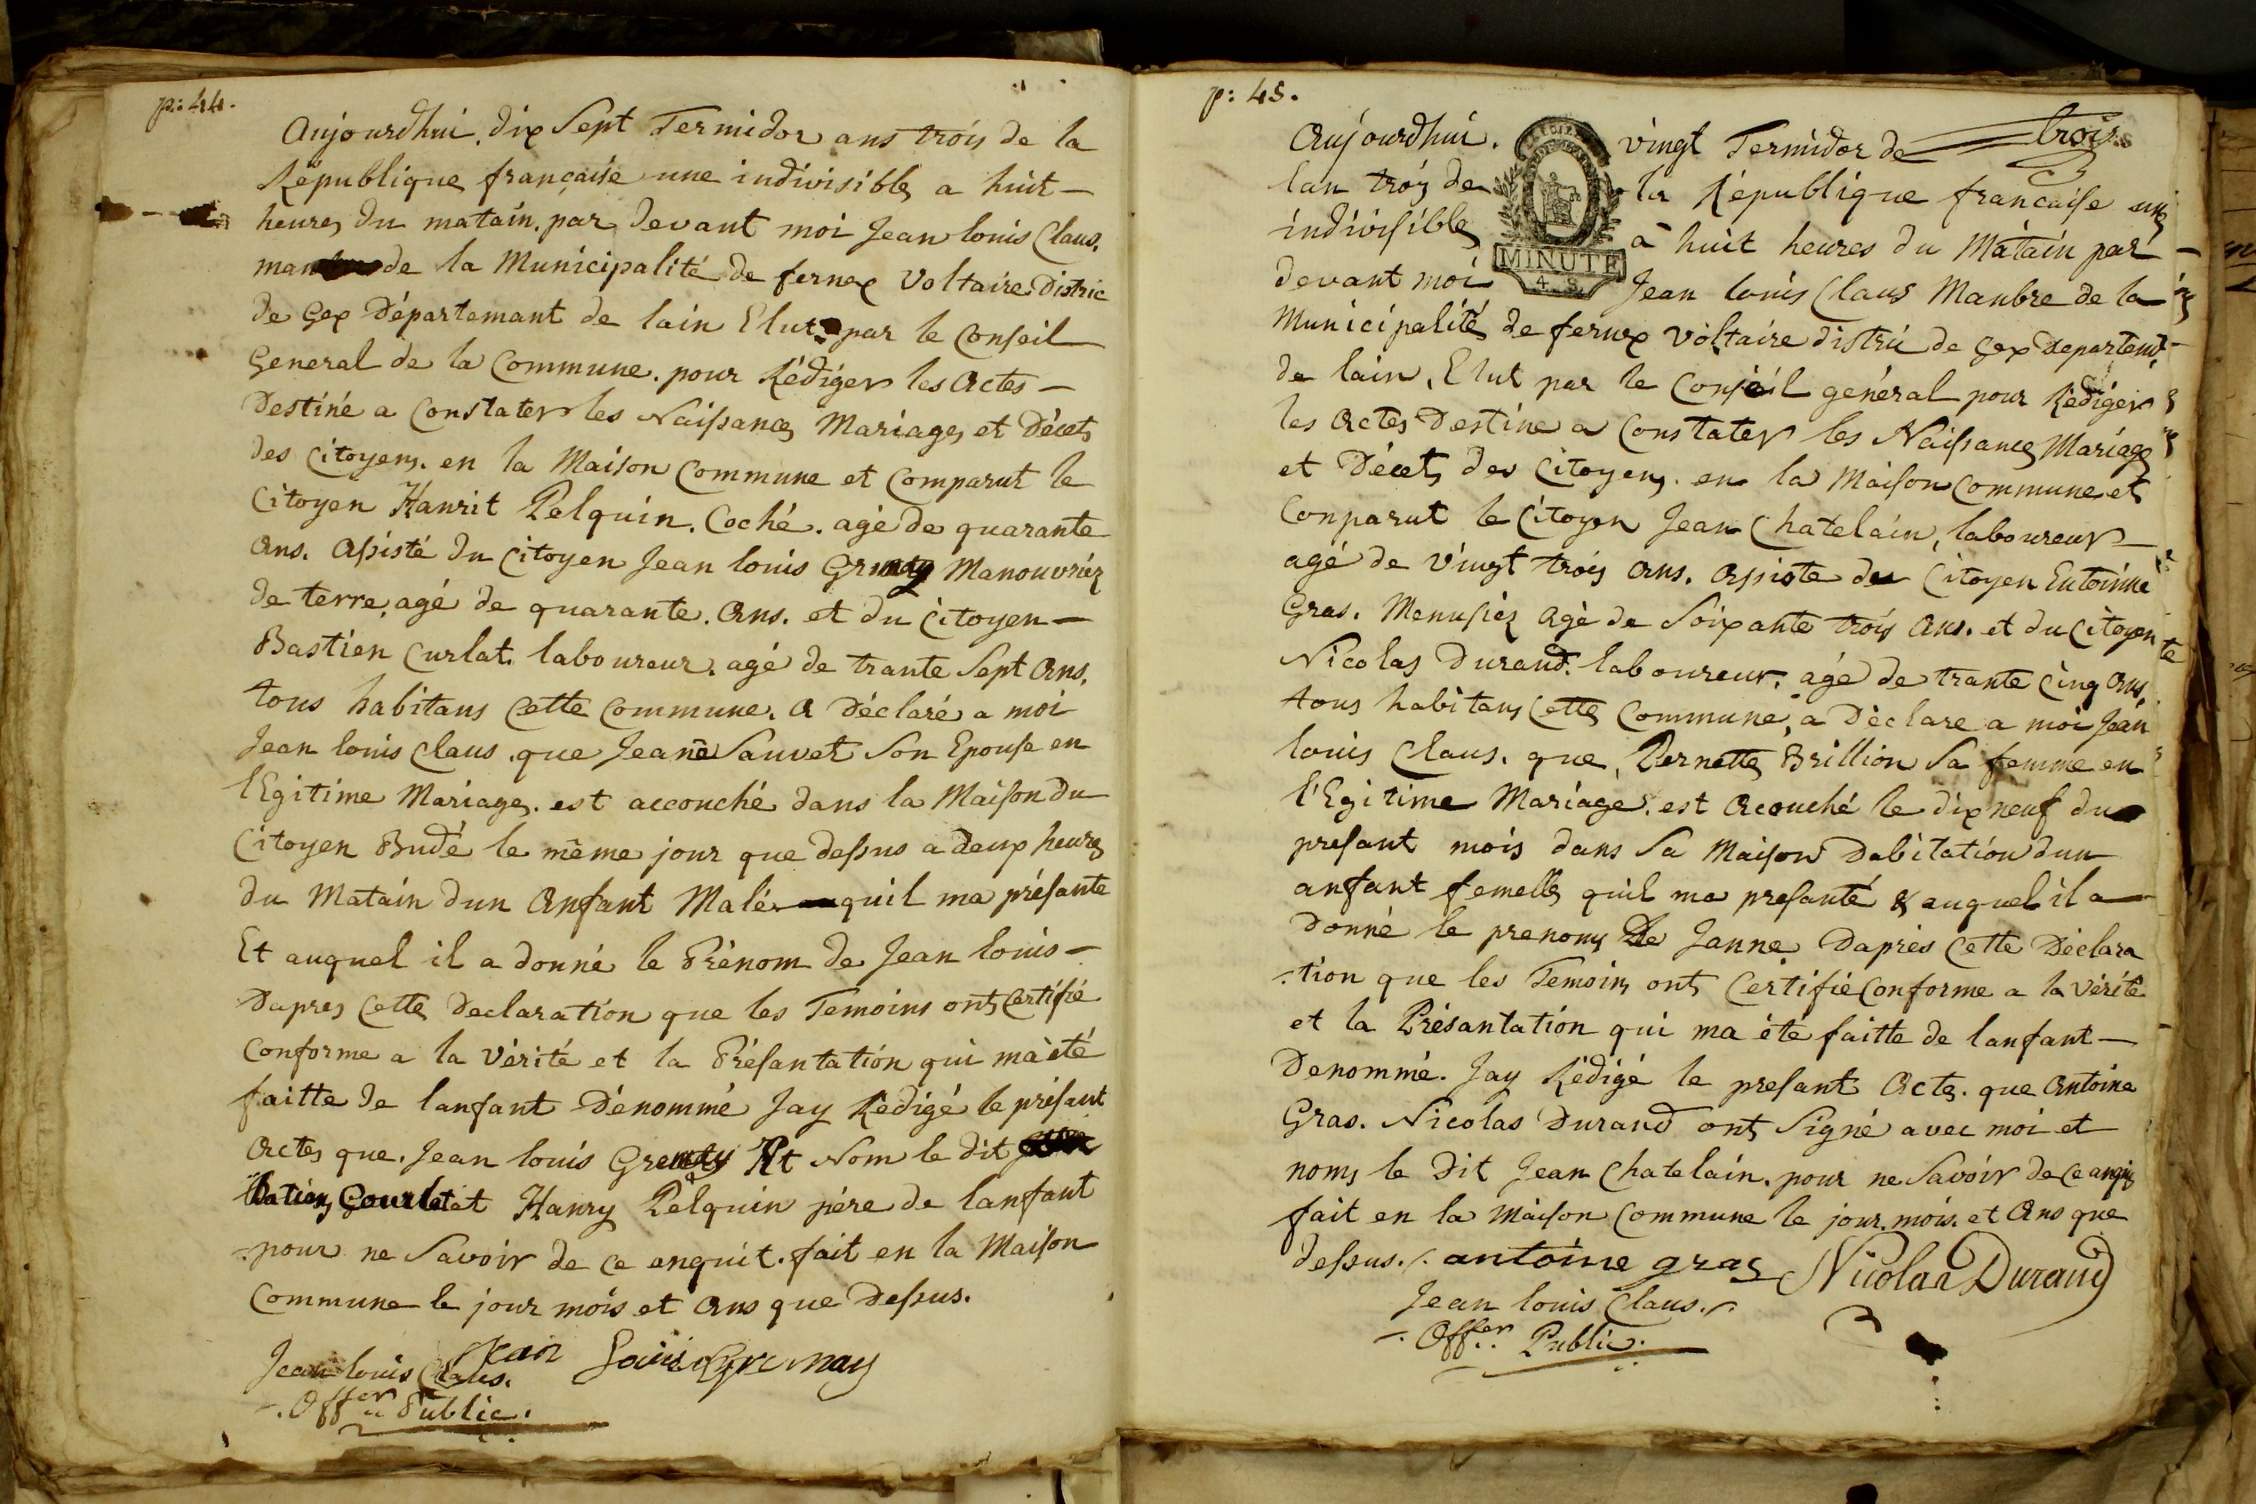 p: 44.
Aujourdhui. dix Sept Termidor ans trois de la
République française une indivisible a huit
heures du matain. par devant moi Jean louis Claus.
man de la Municipalité de fernex Voltaire Distric
de Gex Départemant de lain Elut par le Conseil
General de la Commune. pour Rédiger les Actes
Destiné a Constater les Naissances Mariages et Décets
des Citoyens. en la Maison Commune et Comparut le
Citoyen Hanrit Pelquin. Coché. agé de quarante
ans. Assisté du Citoyen Jean louis Manouvriez
de terre, agé de quarante. Ans. et du Citoyen
Bastien Curlat. laboureur. agé de trante Sept Ans.
tous habitans Cette Commune. A Déclaré a moi
Jean louis Claus. que Jeane Sauvet Son Epouse en
lEgitime Mariages. est accouché dans la Maison du
Citoyen Budé le même jour que dessus a deux heures
du Matain dun Anfant Malé quil ma présante
Et auquel il a donné le Prénom de Jean louis
Dapres Cette Declaration que les Temoins onts Certifié
Conforme a la Vérité et la Présantation qui ma été
faitte de lanfant Dénommé Jay Rédigé le présant
Actes que. Jean louis Nom le dit
et Hanry Pelquin pére de lanfant
pour ne Savoir de ce anquit. fait en la Maison
Commune le jour mois et Ans que Dessus.
Jean louis Claus. Jean Louis gremay
Offer Public.
p: 45.
trois
Aujourdhui. vingt Termidor de
lan trois de la République francaise une
indivisible a huit heures du Matain par
MINUTE
4. S.
devant moi Jean louis Claus Manbre de la
Municipalité de fernex Voltaire distric de Gex Departemt.
de lain, Elut par le Conseil general pour Rédiger
les Actes Destine a Constater les Naissances Mariages
et Décets des Citoyens. en la Maison Commune et
Conparut le Citoyen Jean Chatelain, laboureur
agé de Vingt trois ans. Assiste du Citoyen Entoinne
Gras. Menusiez Agé de Soixante trois Ans. et du Citoyen
Nicolas Durand. laboureur. agé de trante Cinq Ans,
tous habitans Cette Commune, a Déclare a moi Jean
louis Claus. que, Pernette Brillion Sa femme en
l'Egitime Mariage. est Acouché le dix neuf du
presant mois dans Sa Maison Dabitation dun
anfant femelle quil ma presanté & auquel il a
Donné le prenoms De Janne. Daprès Cette Déclara
tion que les Temoins onts Certifié Conforme a la Vérité
et la Présantation qui ma été faitte de lanfant
Denommé. Jay Rédigé le presant Actes. que Antoine
Gras. Nicolas Durand onts Signé avec moi et
noms le Dit Jean Chatelain. pour ne Savoir de ce
fait en la Maison Commune le jour. mois. et Ans que
dessus. antoine gras Nicolas Durand
Jean louis Claus.
Offer. Public.